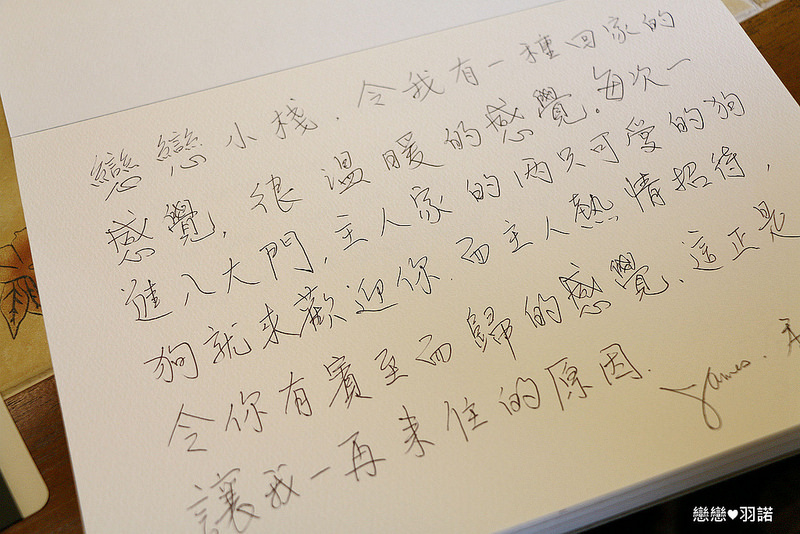 戀戀小棧.令我有一種回家的
感覺,很溫暖的感覺。每次一
進入大門,主人家的两只可愛的狗
狗就來歡迎你.而主人熱情招待,
令你有賓至而歸的感覺.這正是
讓我一再來住的原因.
James.
戀戀♥羽諾